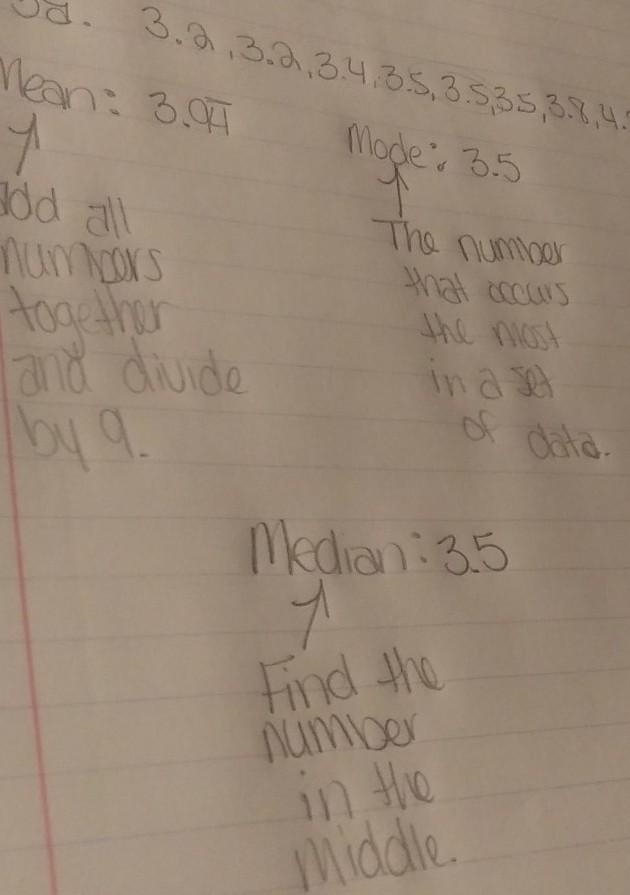 3.2, 3.2, 3.4, 3.5, 3.5, 3.5, 3.8, 4.
Mean: 3.94̅
Mode: 3.5
Add all
numbers
together
and divide
by 9.
The number
that occurs
the most
in a set
of data.
Median: 3.5
Find the
number
in the
middle.